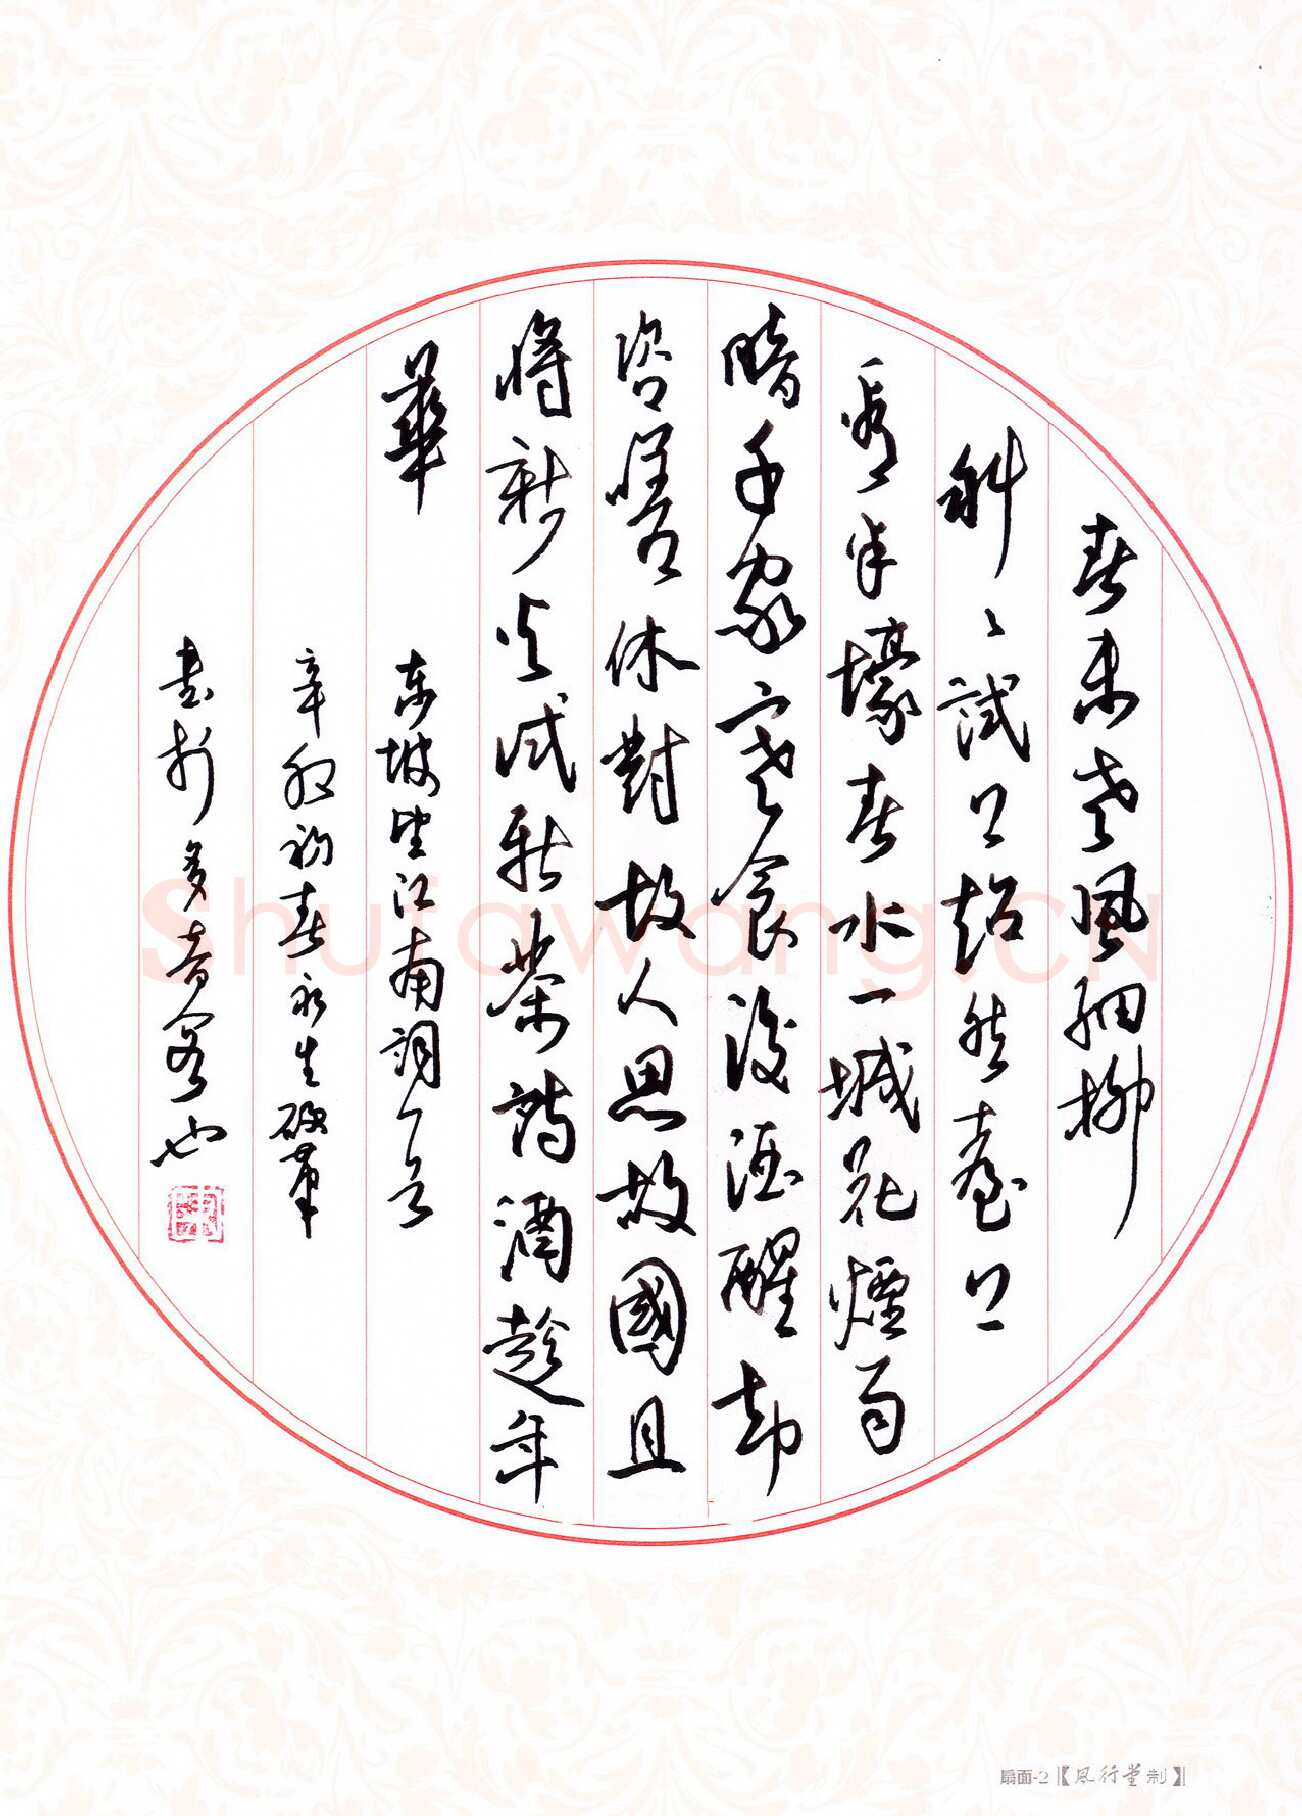 春未老風細柳
斜々試上超然臺上
看半壕春水一城花煙雨
暗千家寒食後酒醒却
咨嗟休對故人思故國且
將新火試新茶詩酒趁年
華
东坡望江南詞一首
辛卯初春永生硬筆
書於多音齋也
Shufawang.CN
扇面-2【風行堂制】